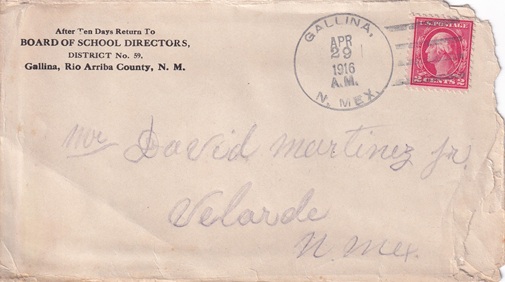 After Ten Days Return To
BOARD OF SCHOOL DIRECTORS,
DISTRICT No. 59,
Gallina, Rio Arriba County, N. M.
GALLINA,
APR
29
1916
A.M.
N. MEX.
U.S. POSTAGE
2 CENTS 2
Mr David Martinez Jr.
Velarde
N. Mex.